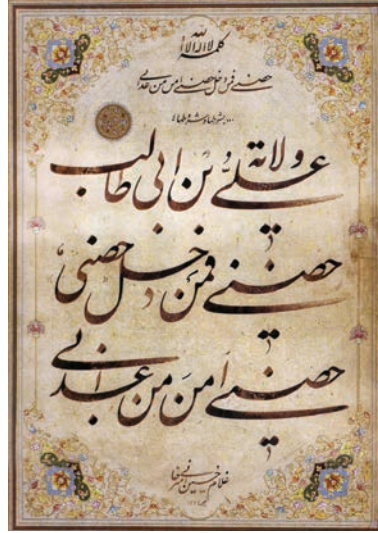 کلمة لا اله الا الله
حصنی فمن دخل حصنی امن من عذابی
... بشرطها و شروطها
ولایة علی بن ابی طالب
حصنی فمن دخل حصنی
حصنی امن من عذابی
غلامحسین امیرخانی